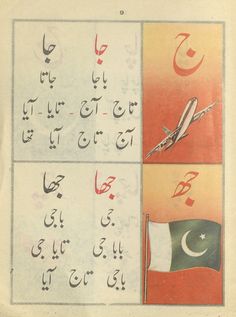 9
ج
جا جا
باجا جاتا
تاج - آج - تایا - آیا
آج تاج آیا تھا
جھ
جھا جھا
جی باجی
بابا جی تایا جی
باجی تاج آیا